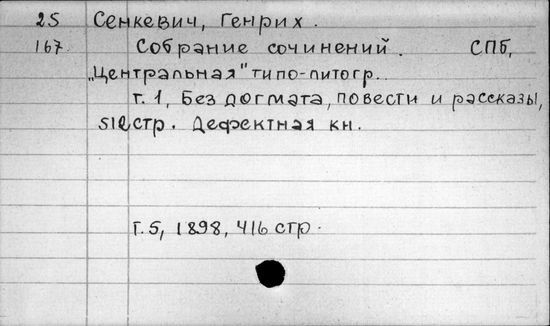 25 Сенкевич, Генрих.
167. Собрание сочинений. СПб,
„Центральная" типо-литогр.
т. 1, Без догмата, повести и рассказы,
512 стр. Дефектная кн.
т. 5, 1898, 416 стр.